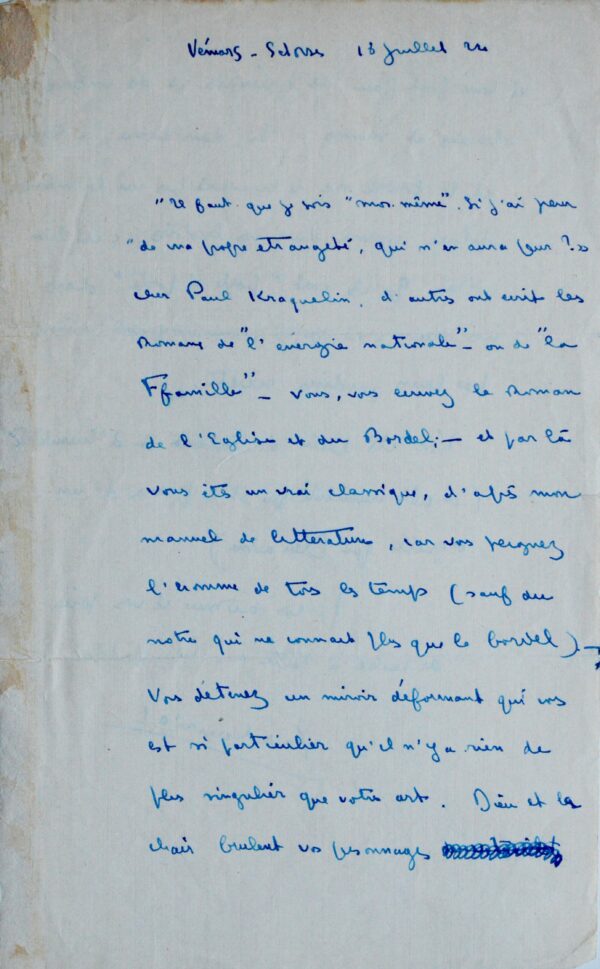 Vémars - Set Oise 13 juillet 24
"Il faut que je sois "moi-même". Si j'ai peur
"de ma propre étrangeté, qui n'en aura peur ?"
cher Paul Kraquelin, d'autres ont écrit les
romans de "l'energie nationale" - ou de "la
Ffamille" - vous, vous ecrivez le roman
de l'Eglise et du Bordel; - et par là
vous êtes un vrai classique, d'après mon
manuel de litterature, car vous peignez
l'homme de tous les temps (sauf du
notre qui ne connait plus que le bordel). -
Vous détenez un miroir déformant qui vous
est si particulier qu'il n'y a rien de
plus singulier que votre art. Dieu et la
chair brulent vos personnages